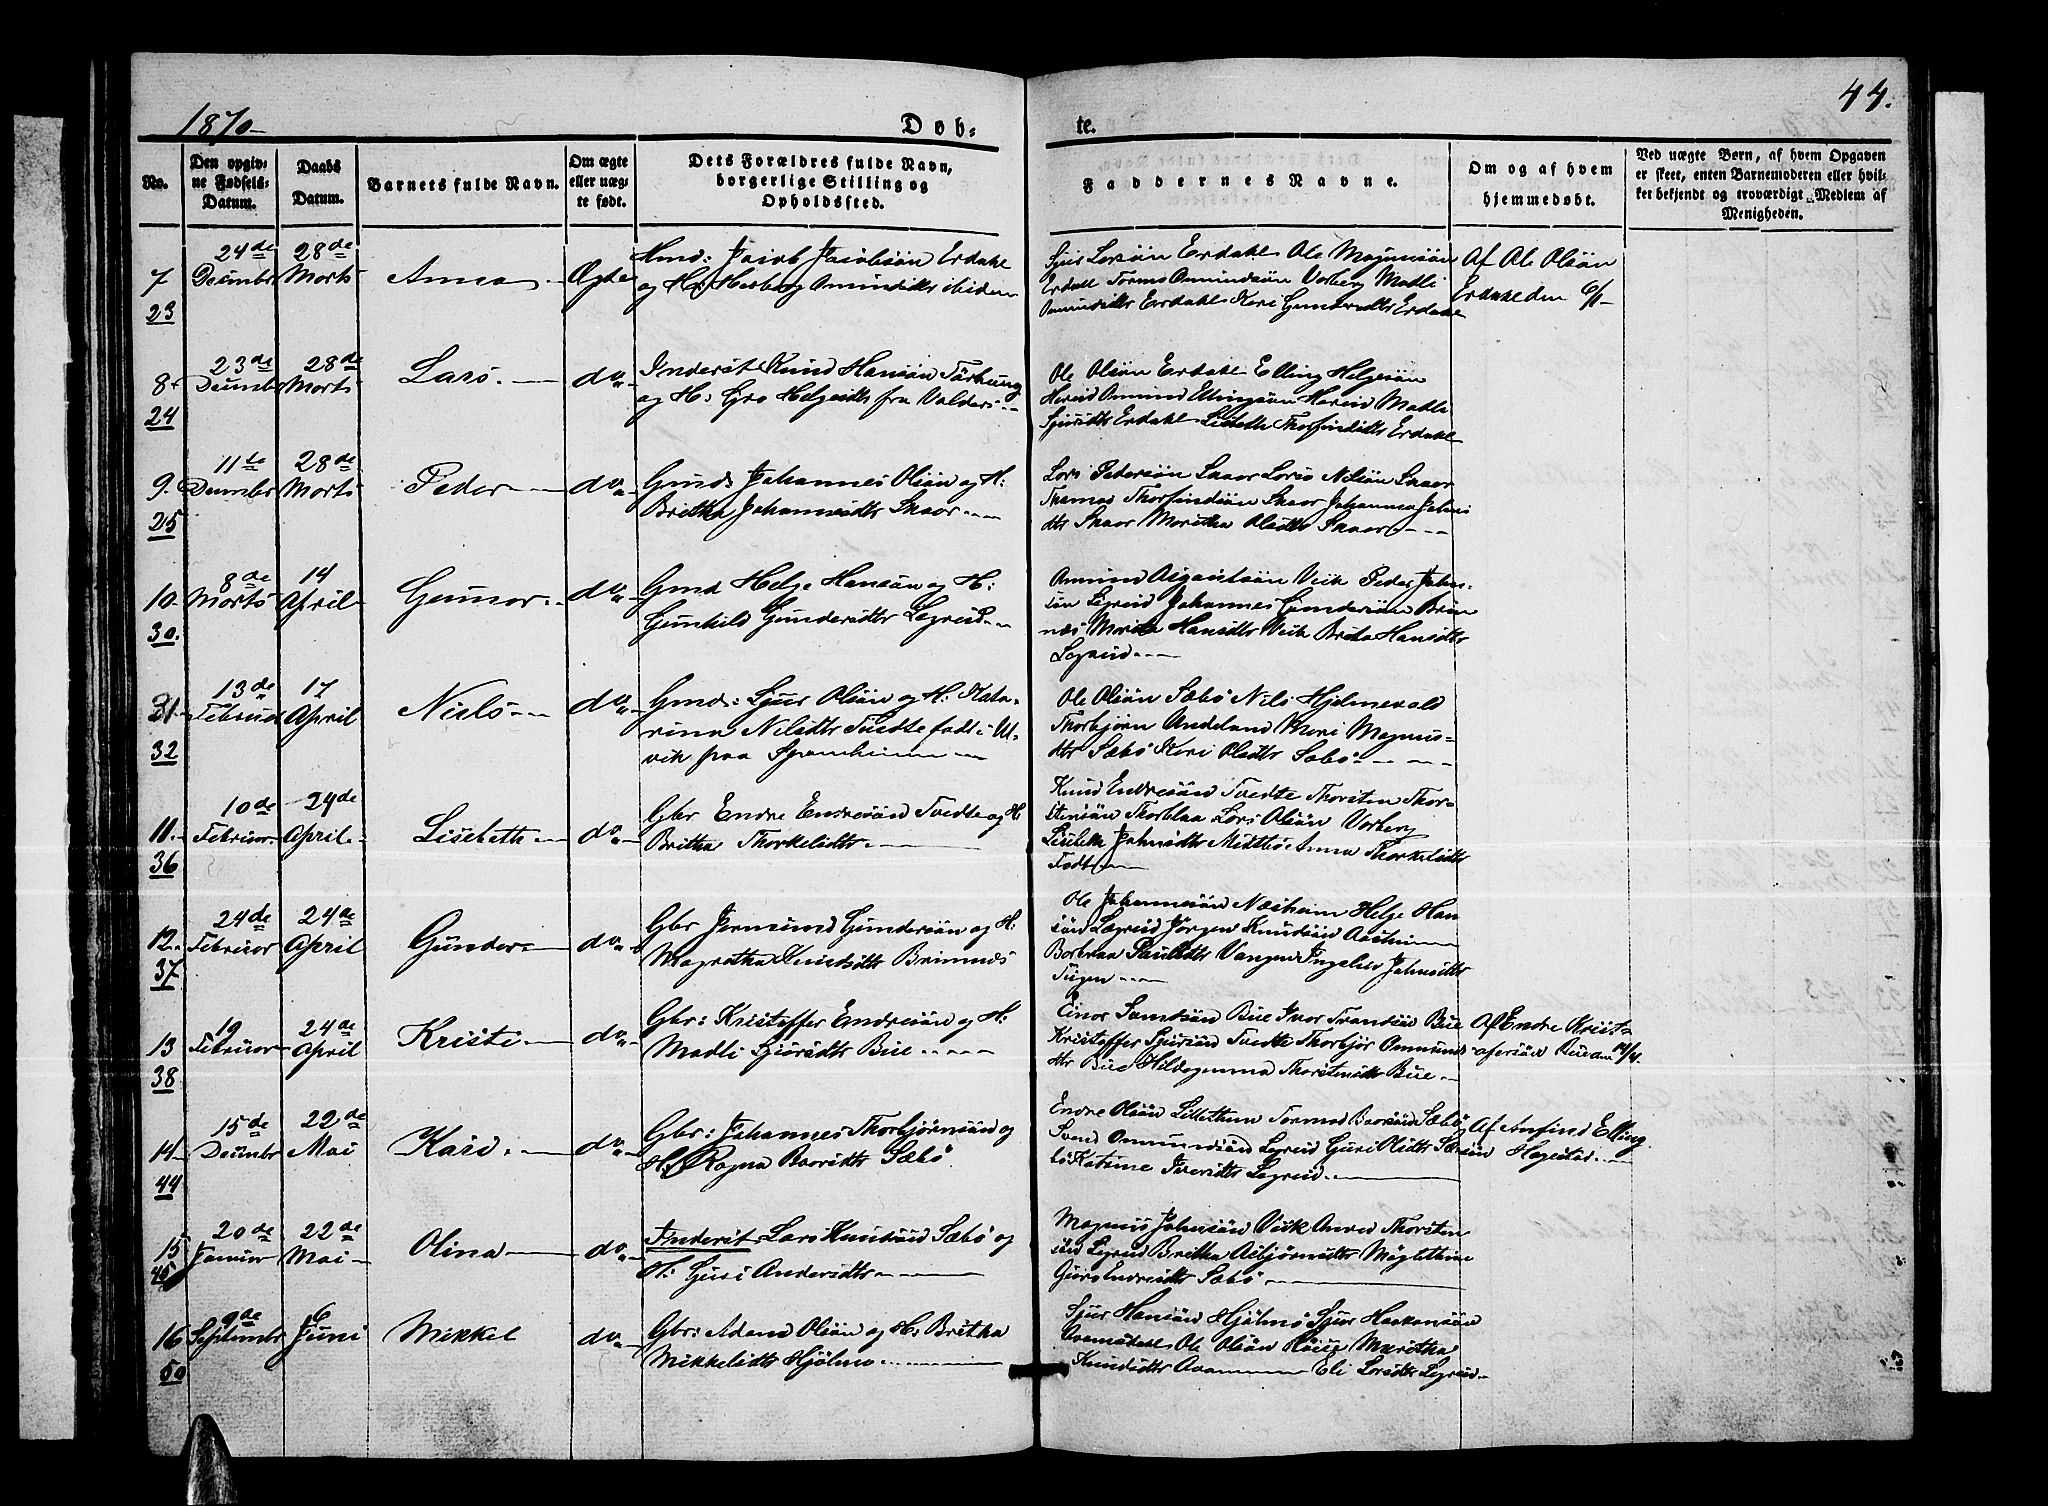 1870
44.
Døb-
te.
No.
Den opgiv-
ne Fødsels-
Datum.
Daabs
Datum.
Barnets fulde Navn.
Om ægte
eller uæg-
te født.
Dets Forældres fulde Navn,
borgerlige Stilling og
Opholdssted.
Faddernes Navne.
Om og af hvem
hjemmedøbt.
Ved uægte Børn, af hvem Opgaven
er skeet, enten Barnemoderen eller hvil-
ket bekjendt og troværdigt Medlem af
Menigheden.
7
23
24de
Decembr
28de
Marts
Anna
Ægte
Jacob Jacobsøn Erdahl
og H: Herborg Amundsdtr ibidem
Sjur Larsøn Erdahl Ole Magnusøn
Erdall Tormo Amundsøn Vorberg Madli
Amundsdtr Erdahl Kari Gunarsdtr Erdahl
Af Ole Olsøn
Erdahl den 6/1
8
24
23de
Decembr
28de
Marts
Lars
do
Inderst Knud Hansøn
og H: Gro Helgesdtr fra Valders
Ole Olsøn Erdahl Elling Helgesøn
Hereid Amund Ellingsøn Hereid Madli
Sjursdtr Erdahl Lisbeth Thorfinsdtr Erdahl
9.
25
11te
Decembr
28de
Marts
Peder
do
Gmd Johannes Olsøn og H:
Britha Johannesdtr Skaar
Lars Pedersøn Skaar Lars Nilsøn Skaar
Thomas Thorfindsøn Skaar Johanna Johns
dtr Skaar Maritha Olsdtr Skaar
10
30.
8de
Marts
14
April
Gunnor
do
Gmd Helge Hansøn og H:
Gunhild Gundersdtr Legreid
Amund Veik Peder John-
søn Legreid Johannes Gundersøn Brim
næs Marita Hansdtr Veik Brita Hansdtr
Legreid
21
32
13de
Februar
17
April
Niels
do
Gmd: Sjur Olsøn og H: Kata-
rina Nilsdtr Tvedte født i Ul-
vik paa Sponheim
Ole Olsøn Sæbø Nils Hjelmevold
Thorbjørn Andeland Mari Magnus-
dtr Sæbø Kari Olsdtr Sæbø
11
36
10de
Februar
24de
April
Lisebeth
do
Gbr Endre Endresøn Tvedte og H
Britha Thorkelsdtr
Knud Endresøn Tvedte Thorsten Thor-
stensøn Thorblaa Lars Olsøn Vorberg
Lisebeth Johnsdtr Midtbø Anna Thorkelsdtr
12
37
24de
Februar
24de
April
Gunder
do
Gbr Jermund Gundersøn og H:
Magretha Knudsdtr Brimnæs
Ole Johannesøn Næsheim Helge Han
søn Lægreid Jørgen Knudsøn
Borbraa Paulsdtr Vangen Ingeleiv Johnsdtr
13
38
19
Februar
24de
April
Kristi
do
Gbr: Kristoffer Endresøn og H:
Madli Sjursdtr Bue
Einar Svendsøn Bue Ivar Bue
Kristoffer Sjursøn Tvedte Thorbjør Ommunds
dtr Bue Thorstensdtr Bue
Af Endre Krist-
ofersøn Bue den
14
44
15de
Decembr
22de
Mai
Kari
do
Gbr: Johannes Thorbjørnsøn og
H: Ragna Baarsdtr Sæbø
Endre Olsøn Lillethun Tormod Baarsøn Sæbø
Svend Ommundsøn Legreid Guri Olsdtr Sæ
bø Katrine Iversdtr Legreid
Af Anfind Elling
søn Hagestad
15
45
20de
Januar
22de
Mai
Olina
do
Inderst Lars Knudsøn Sæbø og
H: Guri Andersdtr
Magnus Johnsøn Veik Thorsten
søn Legreid Britha Asbjørnsdtr Mygletthun
Guro Endresdtr Sæbø
16
50
9de
Septembr
6
Juni
Mikkel
do
Gbr: Adam Olsøn og H: Britha
Mikkelsdtr Hjølmo
Sjur Hansøn Hjølmo Sjur
Ole Olsøn Maritha
Knudsdtr Eli Larsdtr Legreid